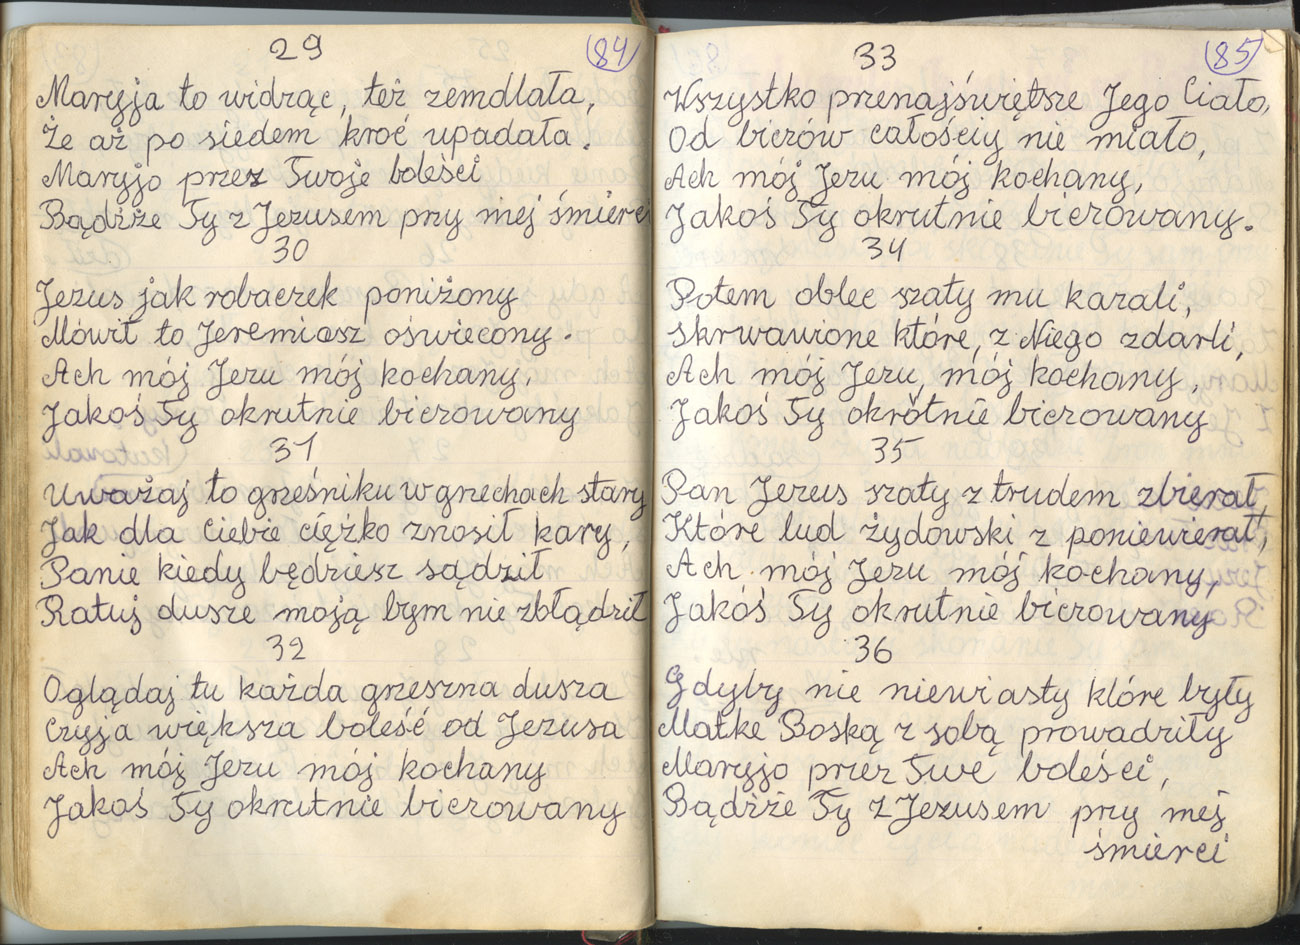 29 (84)
Maryja to widząc, też zemdlała,
Że aż po siedem kroć upadała!
Maryjo przez Twoje boleści
Bądźże Ty z Jezusem przy mej śmierci
30
Jezus jak robaczek poniżony
Mówił to Jeremiasz oświecony.
Ach mój Jezu mój kochany,
Jakoś Ty okrutnie biczowany
31
Uważaj to grześniku w grzechach stary
Jak dla Ciebie ciężko znosił kary,
Panie kiedy będziesz sądził
Ratuj dusze moją bym nie zbłądził
32
Oglądaj tu każda grzeszna dusza
Czyja większa boleść od Jezusa
Ach mój Jezu mój kochany
Jakoś Ty okrutnie biczowany
33 (85)
Wszystko przenajświętsze Jego Ciało,
Od biczów całościy nie miało,
Ach mój Jezu mój kochany,
Jakoś Ty okrutnie biczowany.
34
Potem oblec szaty mu kazali,
skrwawione które, z Niego zdarli,
Ach mój Jezu, mój kochany,
Jakoś Ty okrótnie biczowany
35
Pan Jezus szaty z trudem zbierał,
Które lud żydowski z poniewierał,
Ach mój Jezu mój kochany,
Jakóś Ty okrutnie biczowany
36
Gdyby nie niewiasty które były
Matke Boską z sobą prowadziły
Maryjo przez Twe boleści,
Bądźże Ty z Jezusem przy mej
śmierci